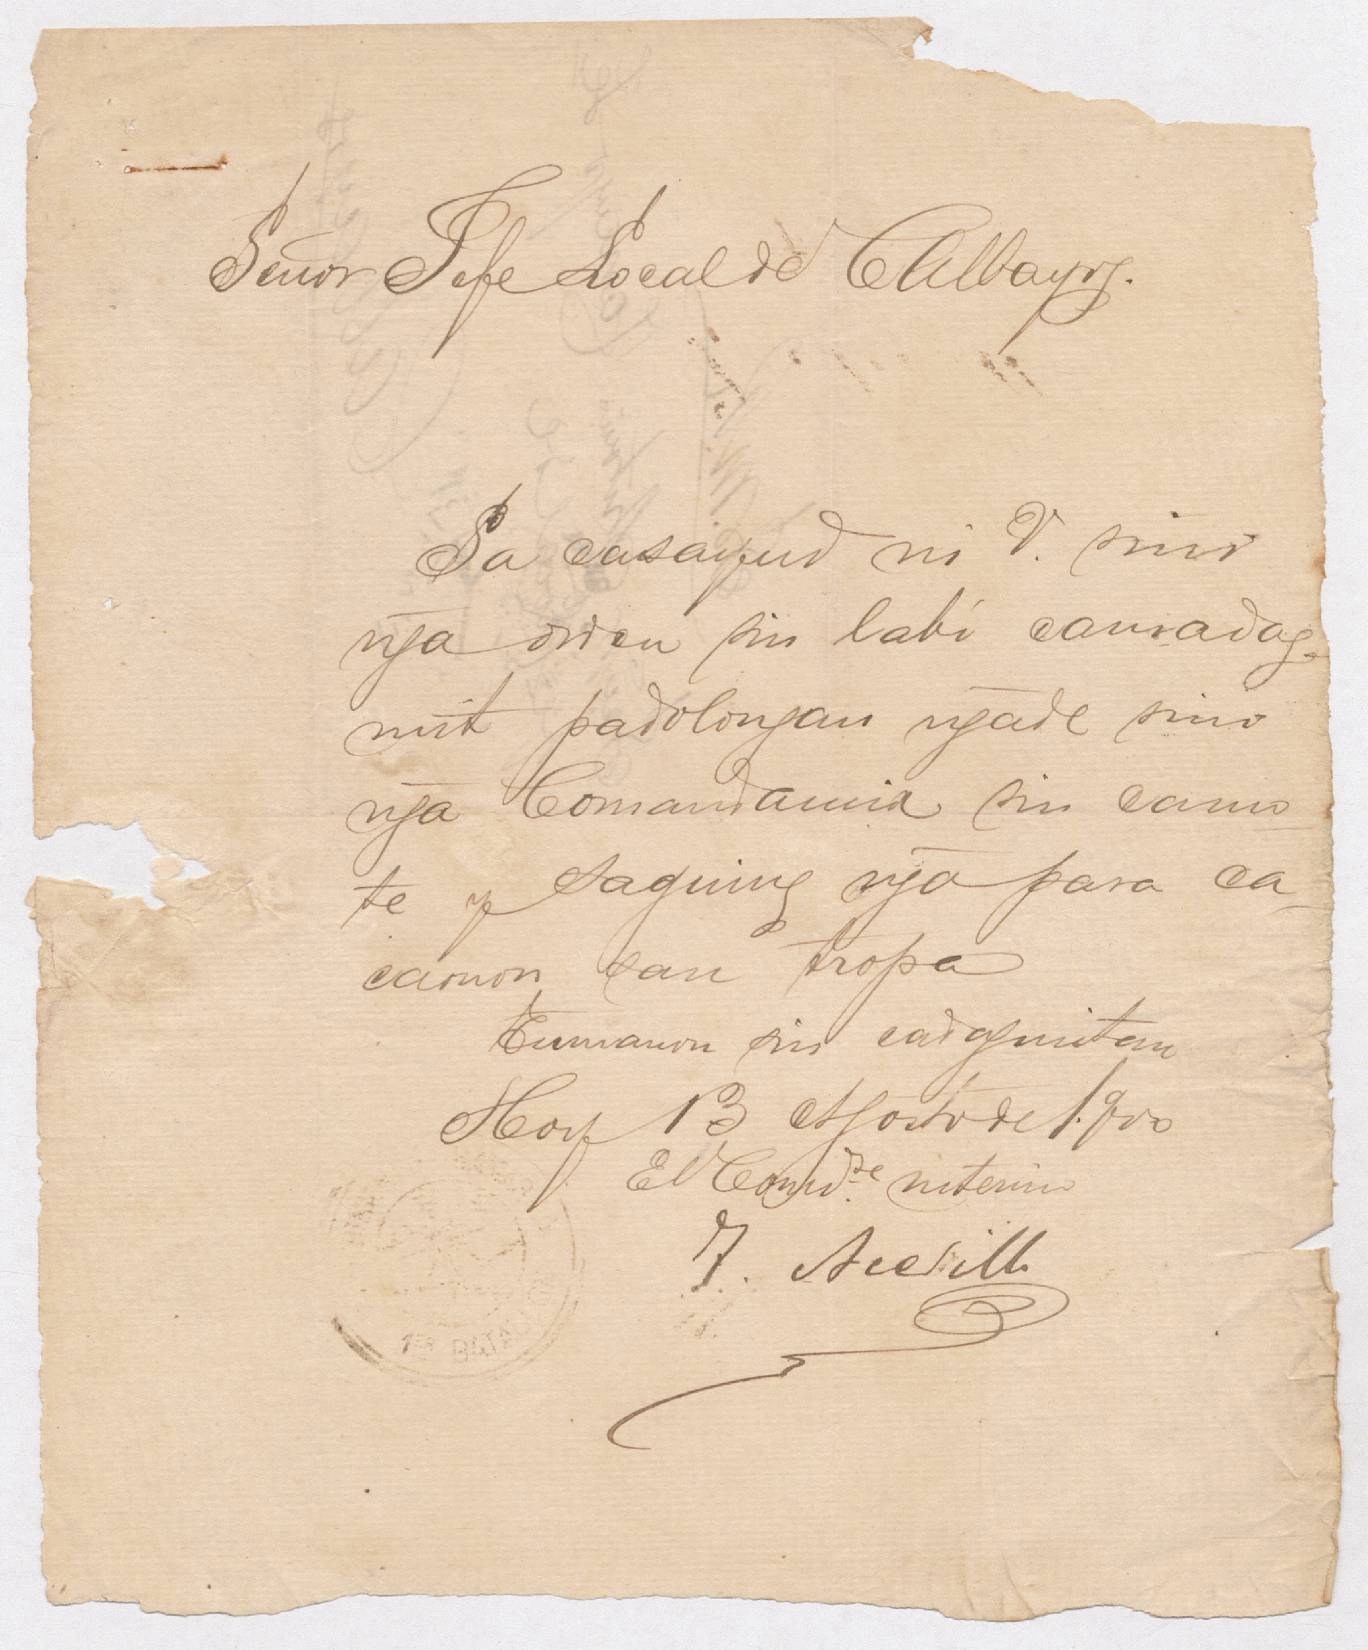 Señor Jefe Local de Albayog.
Sa casayud ni V. sini
nga orden sin labi camadag-
mit padolongan ngade sino
nga Comandancia sin camo-
te y saguing nga para ca-
caonon san tropa
Tumanon sin cadagmitan
Hoy 13 Agosto de 1.900
El Comdte. interino
F. Acedillo
1er BATALLON